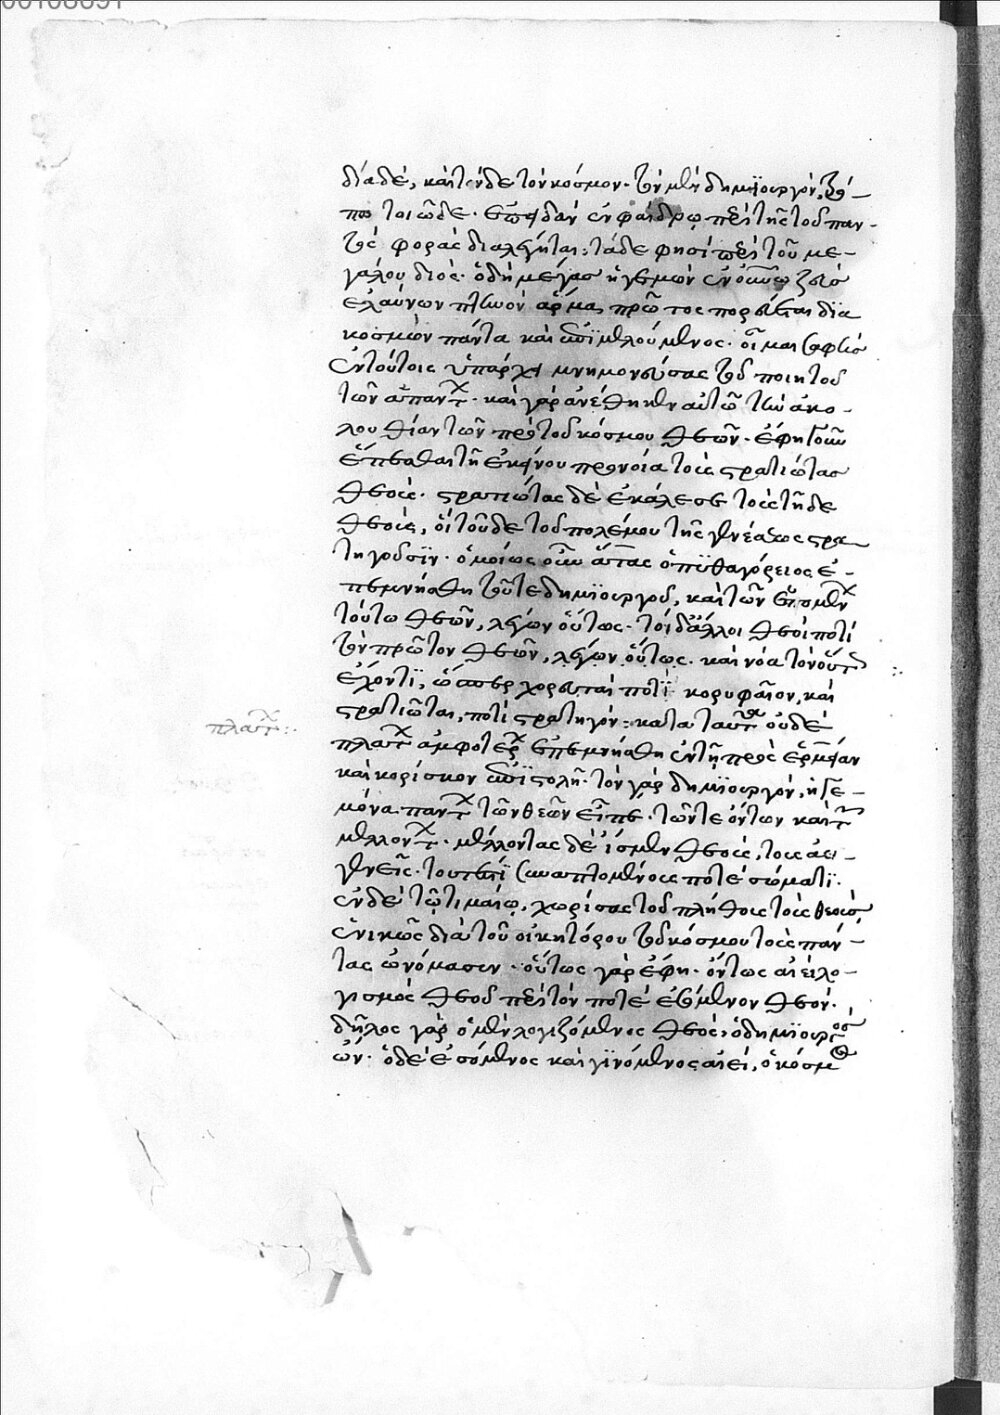 δία δέ, καὶ τόνδε τὸν κόσμον. τὸν μὲν δημιουργὸν,
που τοιῶδε. ἐπειδὰν ἐν φαίδρῳ περὶ τῆς τοῦ παν-
τὸς φορᾶς διαλέγηται· τάδε φησὶ περὶ τοῦ με-
γάλου διός. ὁ δὴ μέγας ἡγεμὼν ἐν οὐρανῷ ζεὺς
ἐλαύνων πτηνὸν ἅρμα, πρῶτος πορεύεται δια
κοσμῶν πάντα καὶ ἐπιμελούμενος. οἶμαι
ἐν τούτοις ὑπάρχει μνημονεύσας τοῦ ποιητοῦ
τῶν ἁπάντων. καὶ γὰρ ἀνέθηκεν αὐτῷ τὴν ἀκο-
λουθίαν τῶν πρὸ τοῦ κόσμου θεῶν. ἔφη γοῦν
ἕπεσθαι τῇ ἐκείνου προνοία τοὺς στρατιώτας
θεούς. στρατιώτας δὲ ἐκάλεσε τοὺς τῆδε
θεούς, οἳ τοῦδε τοῦ πολέμου τῆς γενέσεως στρα
τηγοῦσιν. ὁμοίως οὖν ὁ πυθαγόρειος ἐ-
πεμνήσθη τοῦ τε δημιουργοῦ, καὶ τῶν ἑπομένων
τούτω θεῶν, λέγων οὕτως. τοὶ δ' ἄλλοι θεοὶ ποτὶ
τὸν πρῶτον θεῶν, λέγων οὕτως. καὶ νόατον οὕτως
ἔχοντι, ὥσπερ χορευταὶ ποτὶ κορυφαῖον, καὶ
στρατιῶται, ποτὶ στρατηγόν: κατὰ ταῦτα οὐδὲ
πλάτων ἀμφοτέρων ἐπεμνήσθη ἐν τῇ πρὸς ἑρμείαν
πλάτων:
καὶ κορίσκον ἐπιστολῇ. τὸν γὰρ δημιουργὸν, ἡγε-
μόνα πάντων τῶν θεῶν εἶπε. τῶν τε ὄντων καὶ τῶν
μελλόντων. μέλλοντας δὲ ἴσμεν θεοὺς, τοὺς ἀει-
γενεῖς. τουτέστι συναπτομένους ποτὲ σώματι.
ἐν δὲ τῷ τιμαίῳ, χωρίσας τοῦ πλήθους τοὺς θεούς
ἑνικῶς διὰ τοῦ οἰκήτορος τοῦ κόσμου τοὺς πάν-
τας ὠνόμασεν. οὕτως γὰρ ἔφη. ὄντως αἰεὶ λο-
γισμὸς θεοῦ περὶ τόν ποτε ἐσόμενον θεόν.
δῆλος γὰρ ὁ μὲν λογιζόμενος θεός, ὁ δημιουργὸς
ὤν. ὁ δὲ ἐσόμενος καὶ γινόμενος αἰεί, ὁ κόσμος